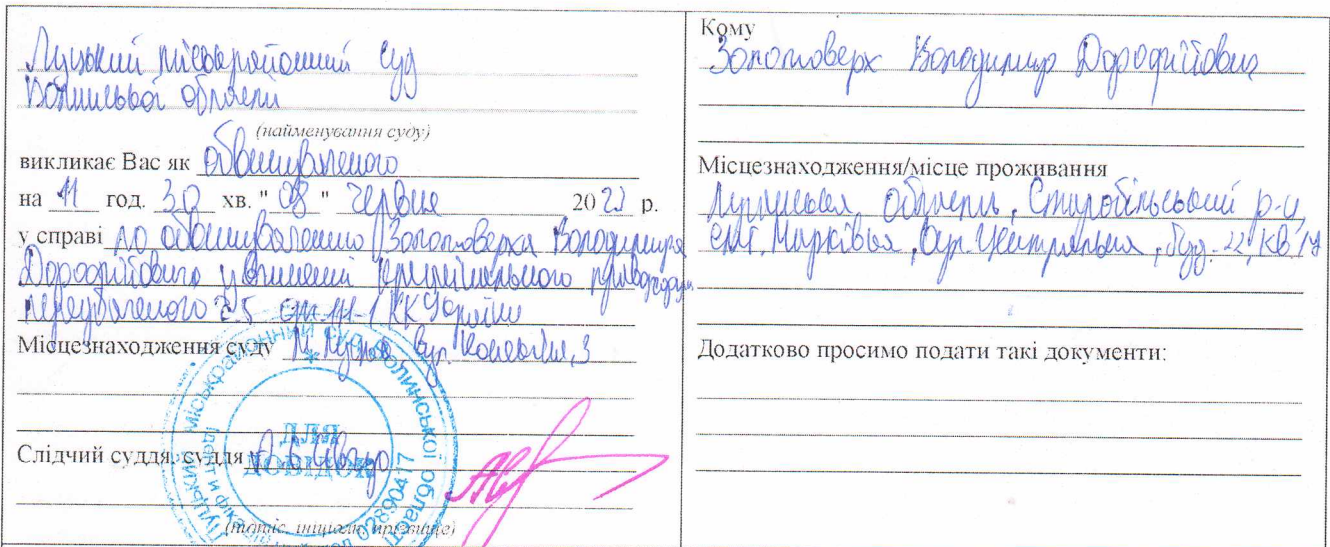 Луцький міськрайонний суд
Волинської області
(найменування суду)
викликає Вас як обвинуваченого
на 11 год. 30 хв. "08" червня 2023 р.
у справі по обвинуваченню Золотоверха Володимира
Дорофійовича у вчиненні кримінального
передбаченого ч.5 ст.111-1 КК України
Місцезнаходження суду м. Луцьк вул. Конякіна, 3
Слідчий суддя, суддя
(підпис, ініціали, прізвище)
ЛУЦЬКИЙ МІСЬКРАЙОННИЙ СУД ВОЛИНСЬКОЇ ОБЛАСТІ
ДЛЯ
ДОВІДОК
Кому
Золотоверх Володимир Дорофійович
Місцезнаходження/місце проживання
Луганська область, Старобільський р-н,
смт. Марківка, вул. Центральна, буд. 22, кв. 17
Додатково просимо подати такі документи: